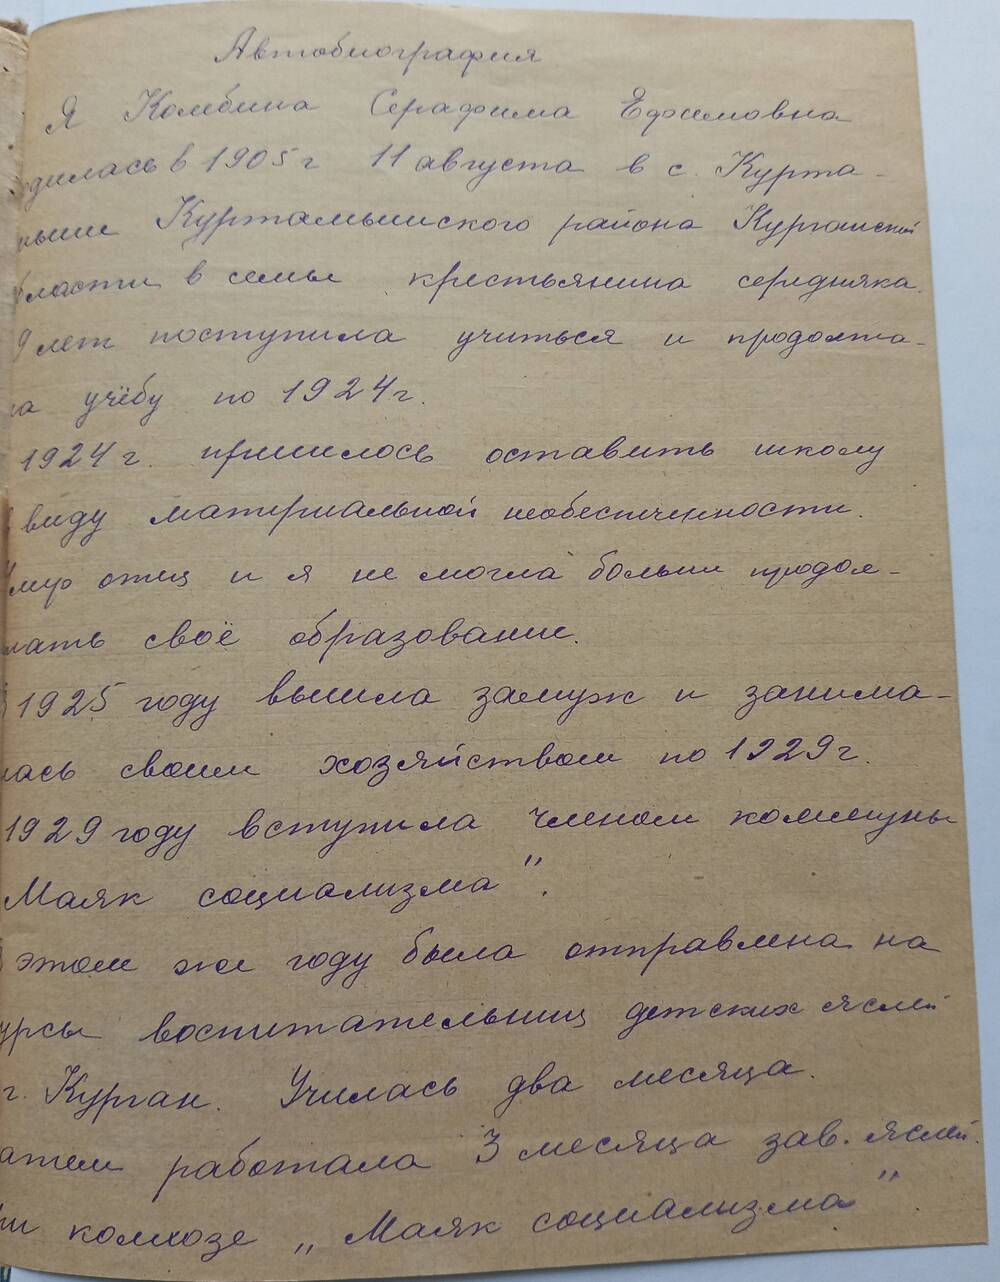 Автобиография
Я Колебина Серафима Ефимовна
дилась в 1905 г 11 августа в с. Курта-
мыши Куртамышского района Курганской
бласти в семье крестьянина середняка.
9 лет поступила учиться и продолжа-
ла учёбу по 1924 г.
1924 г. пришлось оставить школу
виду материальной необеспеченности.
Умер отец и я не могла больше продол-
жать своё образование.
В 1925 году вышла замуж и занима-
лась своим хозяйством по 1929 г.
1929 году вступила членом коммуны
Маяк социализма".
В этом же году была отправлена на
урсы воспитательниц детских яслей
г. Курган. Училась два месяца.
атем работала 3 месяца зав. яслей.
ри колхозе „Маяк социализма"